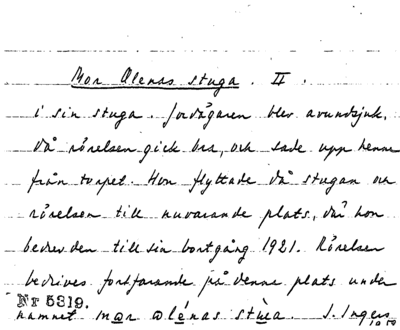 Mor Elenas stuga. II.
i sin stuga. Jordägaren blev avundsjuk,
då rörelsen gick bra, och sade upp henne
från torpet. Hon flyttade då stugan och
rörelsen till nuvarande plats, där hon
bedrev den till sin bortgång 1921. Rörelsen
bedrives fortfarande på denna plats under
Nr 5319.
namnet mor əlénas stùa. I. Ingers